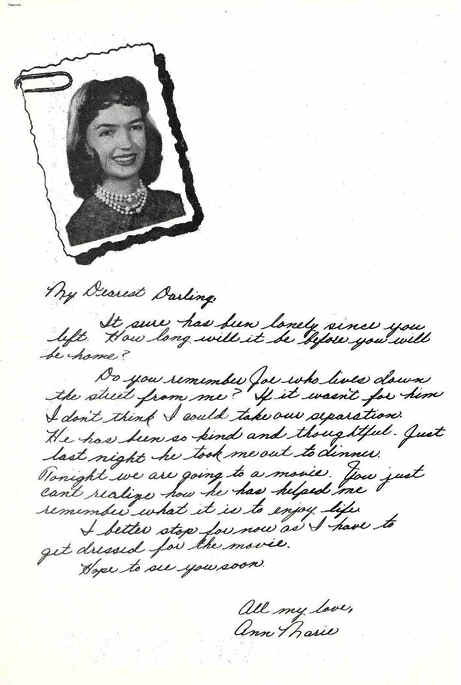 My Dearest Darling,
It sure has been lonely since you
left. How long will it be before you will
be home?
Do you remember Joe who lives down
the street from me? If it wasn't for him
I don't think I could take our separation.
He has been so kind and thoughtful. Just
last night he took me out to dinner.
Tonight we are going to a movie. You just
can't realize how he has helped me
remember what it is to enjoy life.
I better stop for now as I have to
get dressed for the movie.
Hope to see you soon.
All my love,
Ann Marie